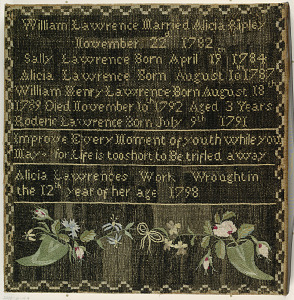 William Lawrence Married Alicia Ripley
November 22d 1782
Sally Lawrence Born April 19 1784
Alicia Lawrence Born August 10 1787
William Henry Lawrence Born August 18
1789 Died November 10th 1792 Aged 3 Years
Roderic Lawrence Born July 9th 1791
Improve Every Moment of youth while you
May for Life is too short to Be trifled away
Alicia Lawrences Work Wrought in
the 12th year of her age 1798